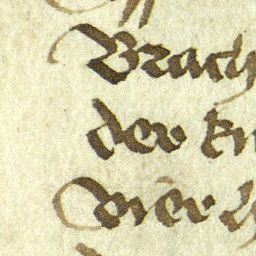 Brach
der kn
vier h